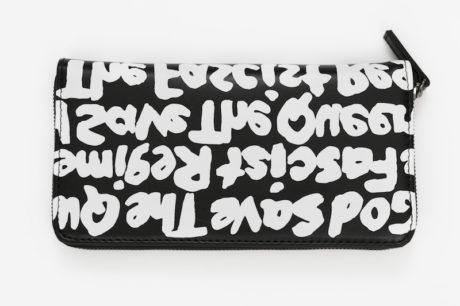 The Fascist Reg
Save The Queen
Fascist Regime
God Save The Qu